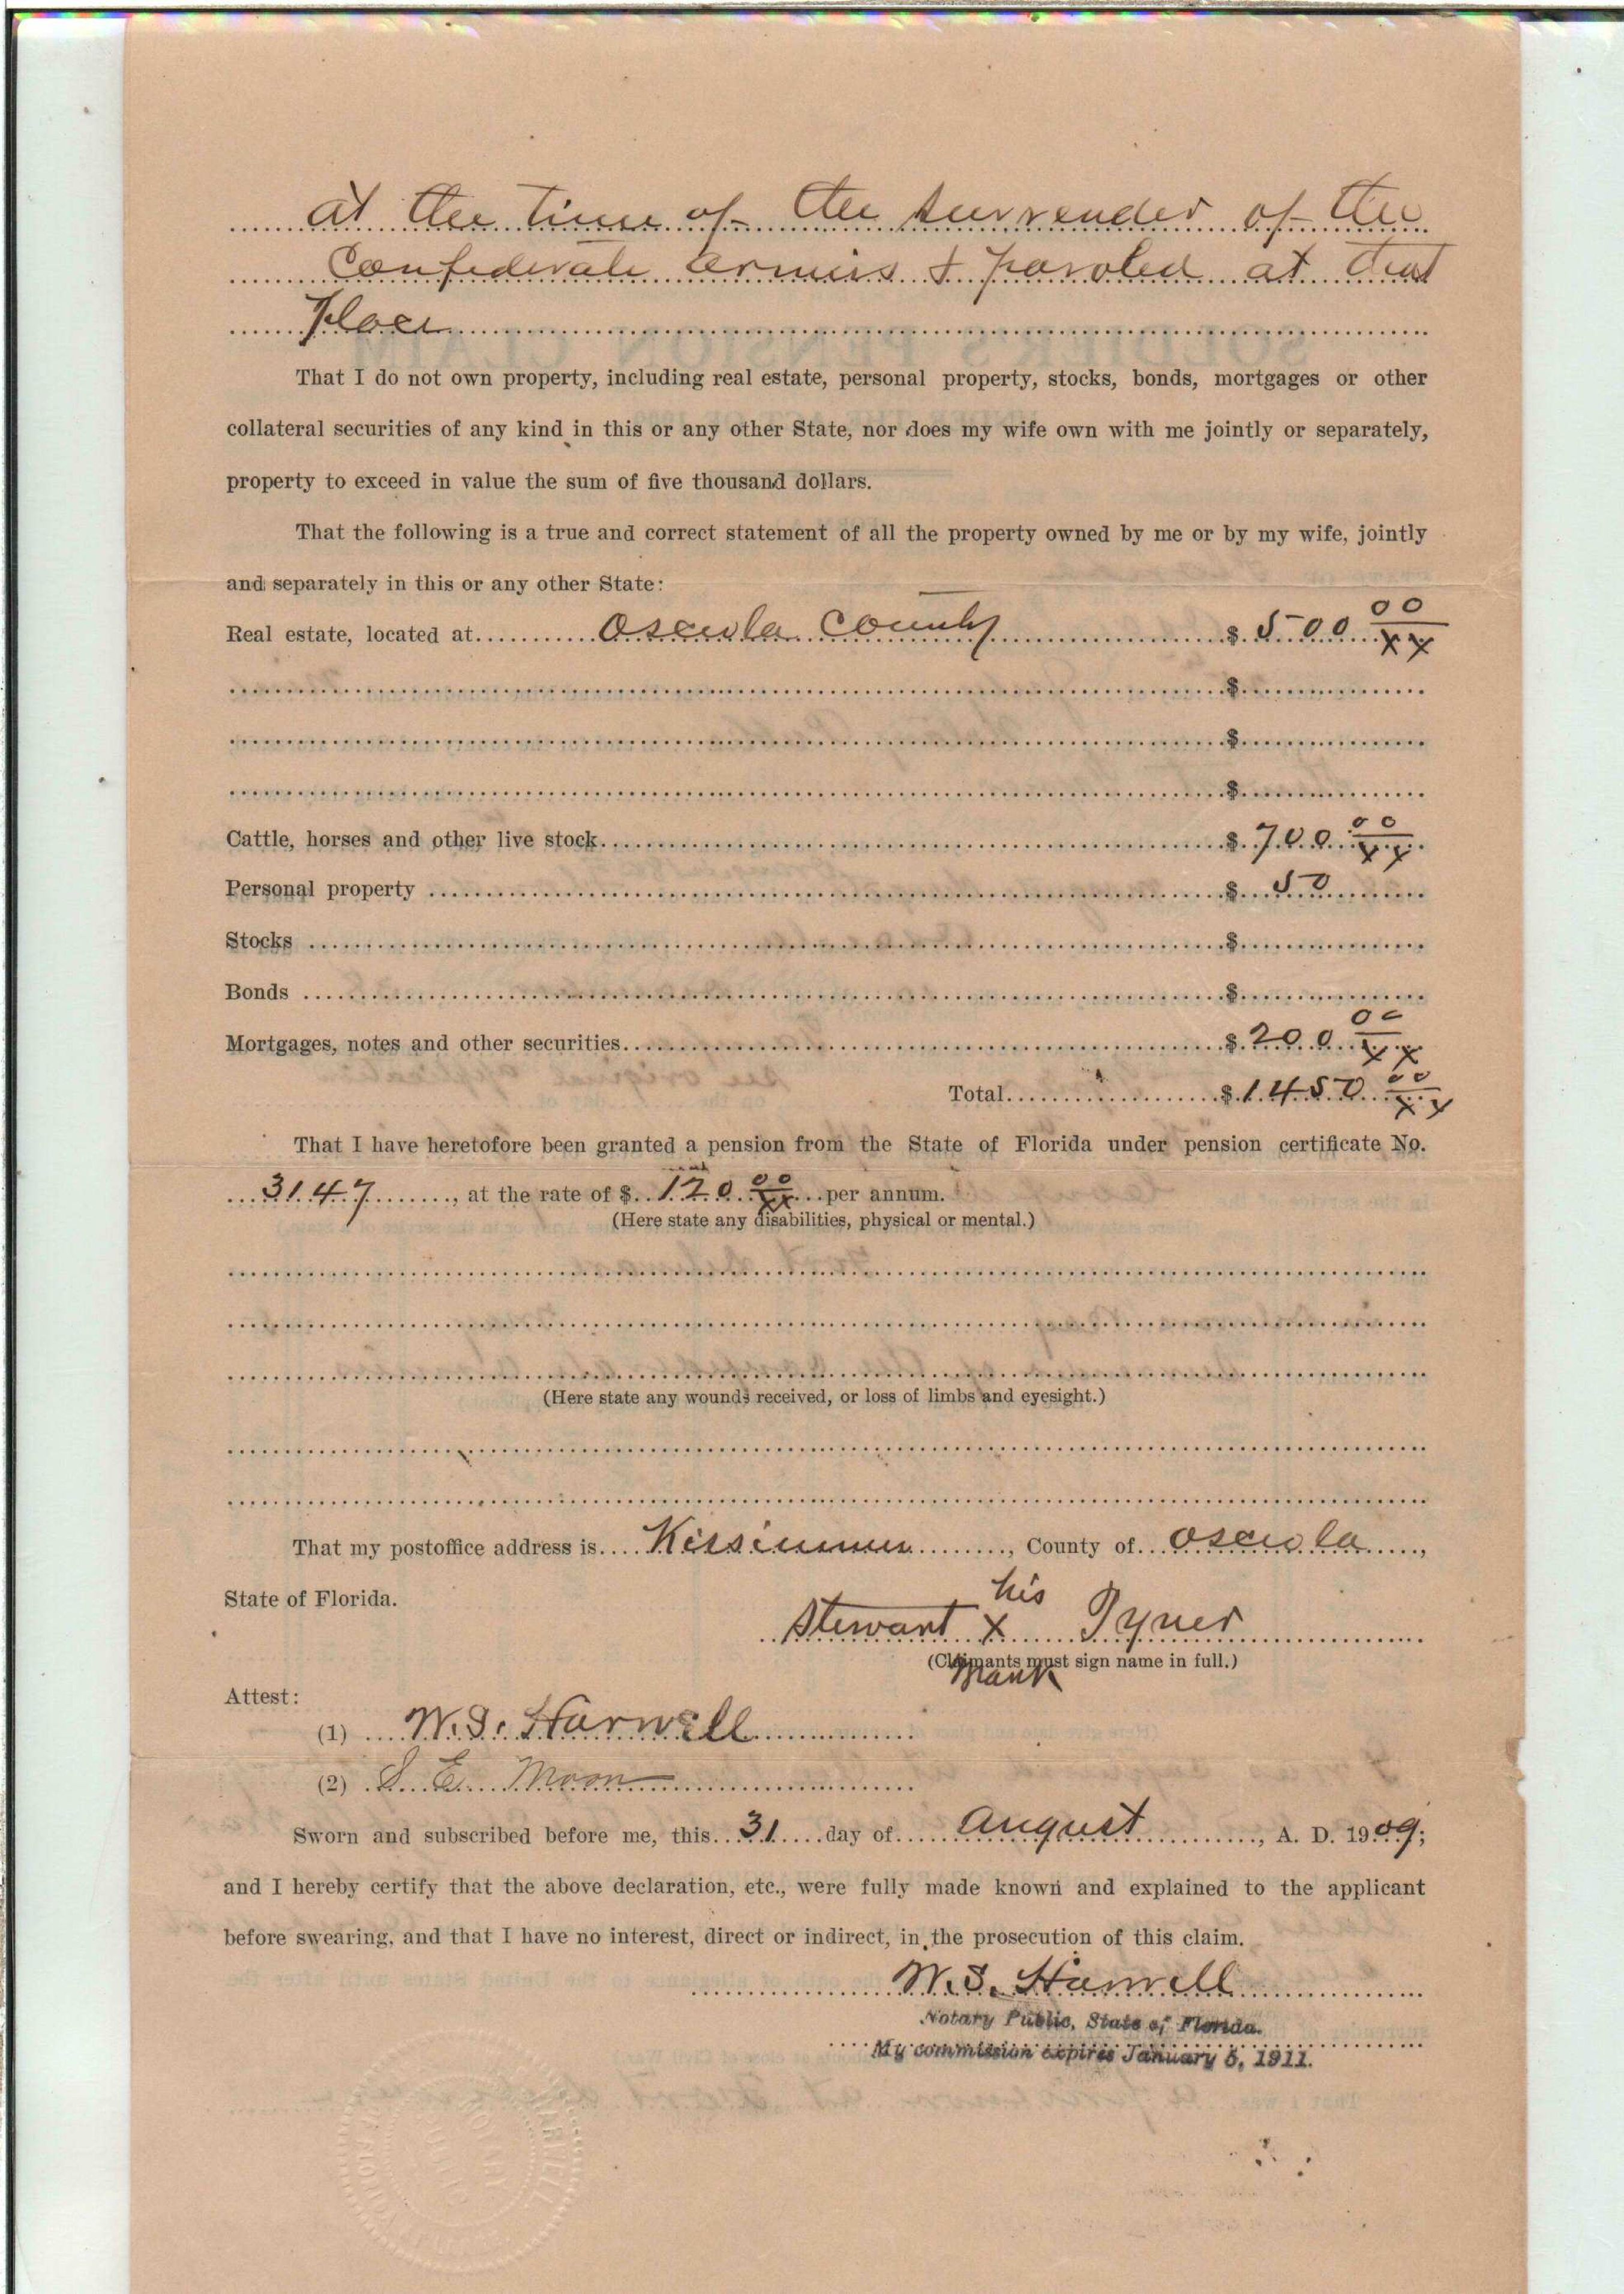 at the time of the surrender of the
Confederate armies & paroled at that
place
That I do not own property, including real estate, personal property, stocks, bonds, mortgages or other
collateral securities of any kind in this or any other State, nor does my wife own with me jointly or separately,
property to exceed in value the sum of five thousand dollars.
That the following is a true and correct statement of all the property owned by me or by my wife, jointly
and separately in this or any other State:
Real estate, located at Osceola County $ 500 00/xx
$
$
$
Cattle, horses and other live stock $ 700 00/xx
Personal property $ 50
Stocks $
Bonds $
Mortgages, notes and other securities $ 200 00/xx
Total $ 1450 00/xx
That I have heretofore been granted a pension from the State of Florida under pension certificate No.
3147, at the rate of $ 120 00/xx per annum.
(Here state any disabilities, physical or mental.)
(Here state any wounds received, or loss of limbs and eyesight.)
That my postoffice address is Kissimmee, County of Osceola,
State of Florida.
his
Stewart X Tyner
(Claimants must sign name in full.)
mark
Attest:
(1) W. S. Harwell
(2) S. E. Moon
Sworn and subscribed before me, this 31 day of August, A. D. 1909;
and I hereby certify that the above declaration, etc., were fully made known and explained to the applicant
before swearing, and that I have no interest, direct or indirect, in the prosecution of this claim.
W. S. Harwell
Notary Public, State of Florida.
My commission expires January 5, 1911.